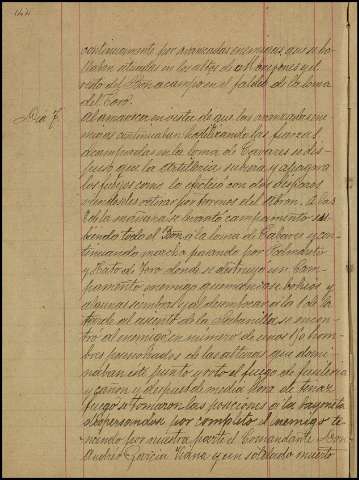 continuamente por avanzadas enemigas, que se ha
llaban situadas en los altos de
resto del Bon acampo en el faldeo de la loma
del Toro.
Dia 7.
Al amanecer en vista de que las avanzadas ene
migas continuaban hostilizando las fuerzas
acampadas en la loma de Tavares se dis-
puso que la Artilleria subiera y apagara
los fuegos como lo efectuo con dos disparos
viendoseles retirar por
8 de la mañana se levantó campamento su
biendo todo el Bon á la loma de Tabares y con-
tinuando marcha pasando por
y Hato de Toro donde se destruyó un Cam-
pamento enemigo quemandose bohios y
algunas siembras y al desembocar á la 1 de la
tarde al asiento de la se encon
tró al enemigo en numero de unos 150 hom-
bres posesionados de las alturas que domi
naban este punto y roto el fuego de fusileria
y cañon y despues de media hora de tenaz
fuego se tomaron las posiciones á la bayoneta
dispersandose por completo el enemigo te-
niendo por nuestra parte el Comandante Don
Andres Garcia y un soldado muerto